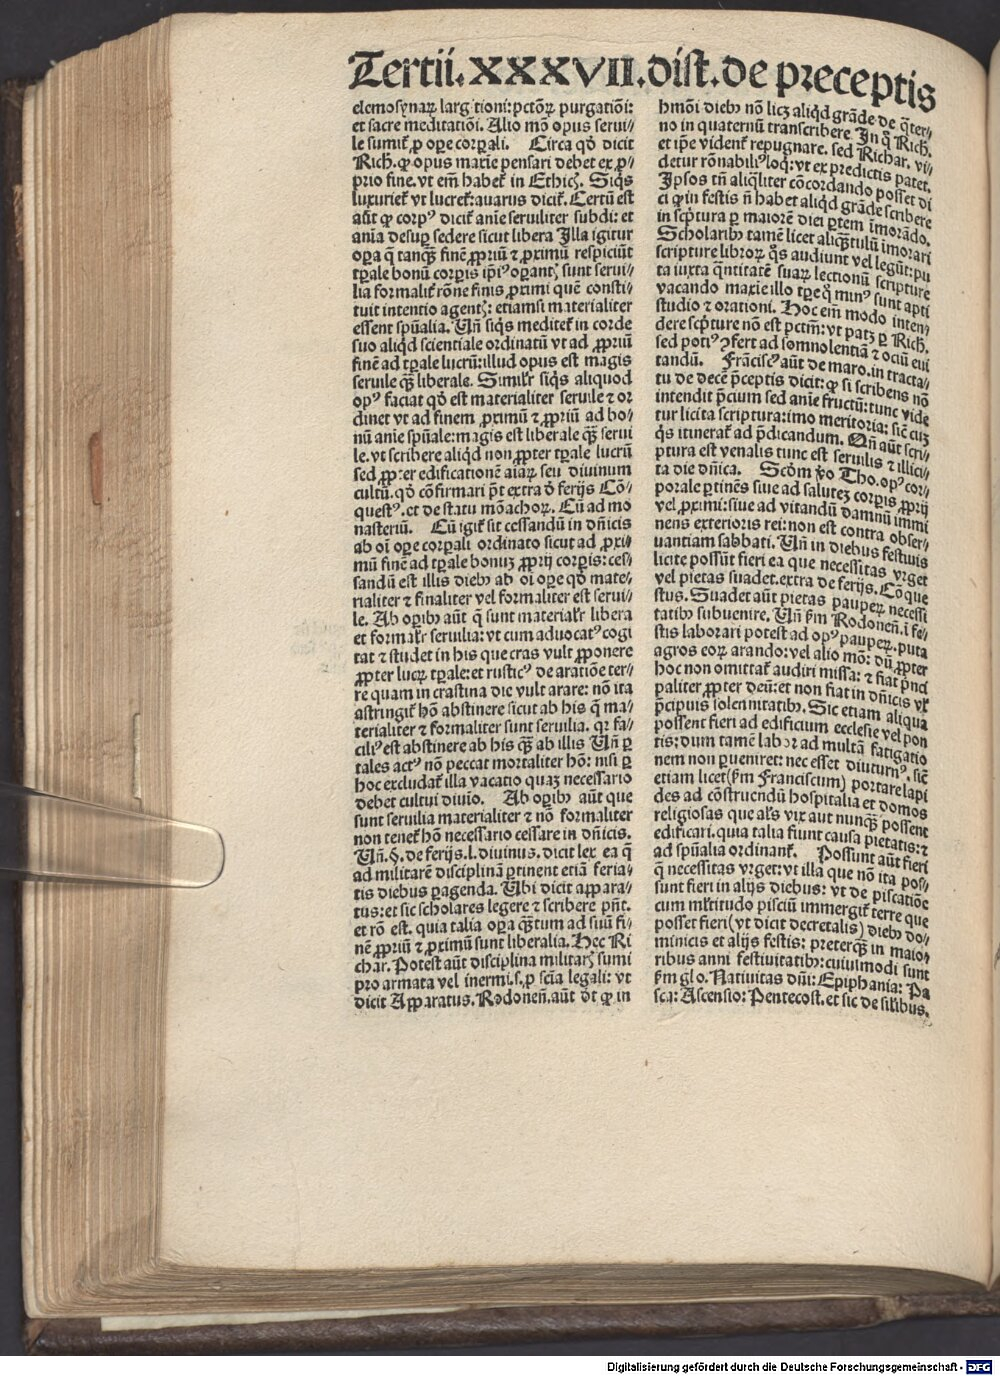 Tertii. XXXVII. dist. de preceptis
elemosynaꝝ larg tioni: pctõꝝ purgatiõi:
et sacre meditatiõi. Alio mõ opus serui⸗
le sumit̃ ꝓ oꝑe corꝑali. Circa qď dicit
Rich. ꝙ opus maxĩe pensari debet ex ꝓ⸗
prio fine. vt em̃ habet̃ in Ethicꝭ. Siq̃s
luxuriet̃ vt lucret̃: auarus dicit̃. Certũ est
aũt ꝙ corpꝰ dicit̃ anĩe seruiliter subdi: et
anĩa desuꝑ sedere sicut libera Illa igitur
oꝑa q̃ tanqꝫ finẽ ꝓpriũ ⁊ ꝓximũ respiciũt
tꝑale bonũ corꝑis ipĩꝰ oꝑantꝭ sunt serui⸗
lia formalit̃ rõne finis ꝓximi quẽ consti⸗
tuit intentio agentꝭ: etiamsi materialiter
essent spũalia. Uñ siq̃s meditet̃ in corde
suo aliqď scientiale ordinatũ vt ad ꝓpriũ
finẽ ad tꝑale lucrũ: illud opus est magis
seruile qꝫ liberale. Similr̃ siq̃s aliquod
opꝰ faciat qď est materialiter seruile ⁊ or
dinet vt ad finem ꝓximũ ⁊ ꝓpriũ ad bo⸗
nũ anĩe spũale: magis est liberale qꝫ serui
le. vt scribere aliqď non ꝓpter tꝑale lucrũ
sed ꝓpter edificationẽ aĩaꝝ seu diuinum
cultũ. qď cõfirmari põt extra ď ferijs Cõ⸗
questꝰ. et de statu mõachoꝝ. Cũ ad mo
nasteriũ. Cũ igit̃ sit cessandũ in dñicis
ab oĩ oꝑe corꝑali ordinato sicut ad ꝓxi⸗
mũ finẽ ad tꝑale bonuꝫ ꝓprij corꝑis: ces⸗
sandũ est illis diebꝰ ab oĩ oꝑe qď mate⸗
rialiter ⁊ finaliter vel formaliter est serui⸗
le. Ab oꝑibꝰ aũt q̃ sunt materialr̃ libera
et formalr̃ seruilia: vt cum aduocatꝰ cogi
tat ⁊ studet in his que cras vult ꝓponere
ꝓpter lucꝝ tꝑale: et rusticꝰ de aratiõe ter⸗
re quam in crastina die vult arare: nõ ita
astringit̃ hõ abstinere sicut ab his q̃ ma⸗
terialiter ⁊ formaliter sunt seruilia. qr fa⸗
ciliꝰ est abstinere ab his qꝫ ab illis Uñ ꝑ
tales actꝰ nõ peccat mortaliter hõ: nisi ꝑ
hoc excludat̃ illa vacatio quaꝫ necessario
debet cultui diuĩo. Ab oꝑibꝰ aũt que
sunt seruilia materialiter ⁊ nõ formaliter
non tenet̃ hõ necessario cessare in dñicis.
Uñ. ff. de ferijs. l. diuinus. dicit lex ea q̃
ad militarẽ disciplinã ꝑtinent etiã feria⸗
tis diebus ꝑagenda. Ubi dicit apꝑara⸗
tus: et sic scholares legere ⁊ scribere pñt.
et rõ est. quia talia oꝑa qꝫtum ad suũ fi⸗
nẽ ꝓpriũ ⁊ ꝓximũ sunt liberalia. Hec Ri
char. Potest aũt disciplina militarꝭ sumi
pro armata vel inermi. s. ꝓ scĩa legali: vt
dicit Apparatus. Rodoneñ. aũt ďt ꝙ in
hmõi diebꝰ nõ licꝫ aliqď grãde de q̃ter⸗
no in quaternũ transcribere. In q̃ Rich.
et ipẽ vident̃ repugnare. sed Richar. vi⸗
detur rõnabiliꝰ loq̃: vt ex predictis patet.
Ipsos tñ aliqliter cõcordando posset di
ci ꝙ in festis ñ habet aliqď grãde scribere
in scp̃tura ꝑ maiorẽ diei ꝑtem ĩmorãdo.
Scholaribꝰ tamẽ licet aliqꝫtulũ ĩmorari
scripture libroꝝ q̃s audiunt vel legũt: pu
ta iuxta q̃ntitatẽ suaꝝ lectionũ scripture
vacando maxĩe illo tꝑe q̃ minꝰ sunt apti
studio ⁊ orationi. Hoc em̃ modo inten⸗
dere scp̃ture nõ est pctm̃: vt patꝫ ꝑ Rich.
sed potiꝰ ꝯfert ad somnolentiã ⁊ ociũ eui
tandũ. Frãciscꝰ aũt de maro. in tracta⸗
tu de decẽ p̃ceptis dicit: ꝙ si scribens nõ
intendit p̃cium sed anĩe fructũ: tunc vide
tur licita scriptura: imo meritoria: sic̃ cuꝫ
q̃s itinerat̃ ad p̃dicandum. Qñ aũt scri⸗
ptura est venalis tunc est seruilis ⁊ illici⸗
ta die dñica. Scďm ṽo Tho. opꝰ cor⸗
porale ꝑtinẽs siue ad saluteꝫ corꝑis ꝓprij
vel ꝓximi: siue ad vitandũ damnũ immi
nens exterioris rei: non est contra obser⸗
uantiam sabbati. Uñ in diebus festiuis
licite possũt fieri ea que necessitas vrget
vel pietas suadet. extra de ferijs. Cõque
stus. Suadet aũt pietas pauperꝝ necessi
tatibꝰ subuenire. Uñ ẜm Rodoneñ. ĩ fe⸗
stis laborari potest ad opꝰ pauperꝝ. puta
agros eoꝝ arando: vel alio mõ: dũ ꝓpter
hoc non omittat̃ audiri missa: ⁊ fiat p̃nci
paliter ꝓpter deũ: et non fiat in dñicis vt̃
p̃cipuis solennitatibꝰ. Sic etiam aliqua
possent fieri ad edificium ecclesie vel pon
tis: dum tamẽ labor ad multã fatigatio
nem non ꝑueniret: nec esset diuturnꝰ. sic̃
etiam licet (ẜm Franciscum) portare lapi
des ad cõstruendũ hospitalia et domos
religiosas que als̃ vix aut nunqꝫ possent
edificari. quia talia fiunt causa pietatis: ⁊
ad spũalia ordinant̃. Possunt aũt fieri
q̃ necessitas vrget: vt illa que nõ ita pos⸗
sunt fieri in alijs diebus: vt de piscatiõe
cum mĩtitudo pisciũ immergit̃ terre que
posset fieri (vt dicit decretalis) diebꝰ do⸗
minicis et alijs festis: preterqꝫ in maio⸗
ribus anni festiuitatibꝰ: cuiusmodi sunt
ẜm glo. Natiuitas dñi: Epiphania: Pa
sca: Ascensio: Pentecost. et sic de silibus.
Digitalisierung gefördert durch die Deutsche Forschungsgemeinschaft - DFG